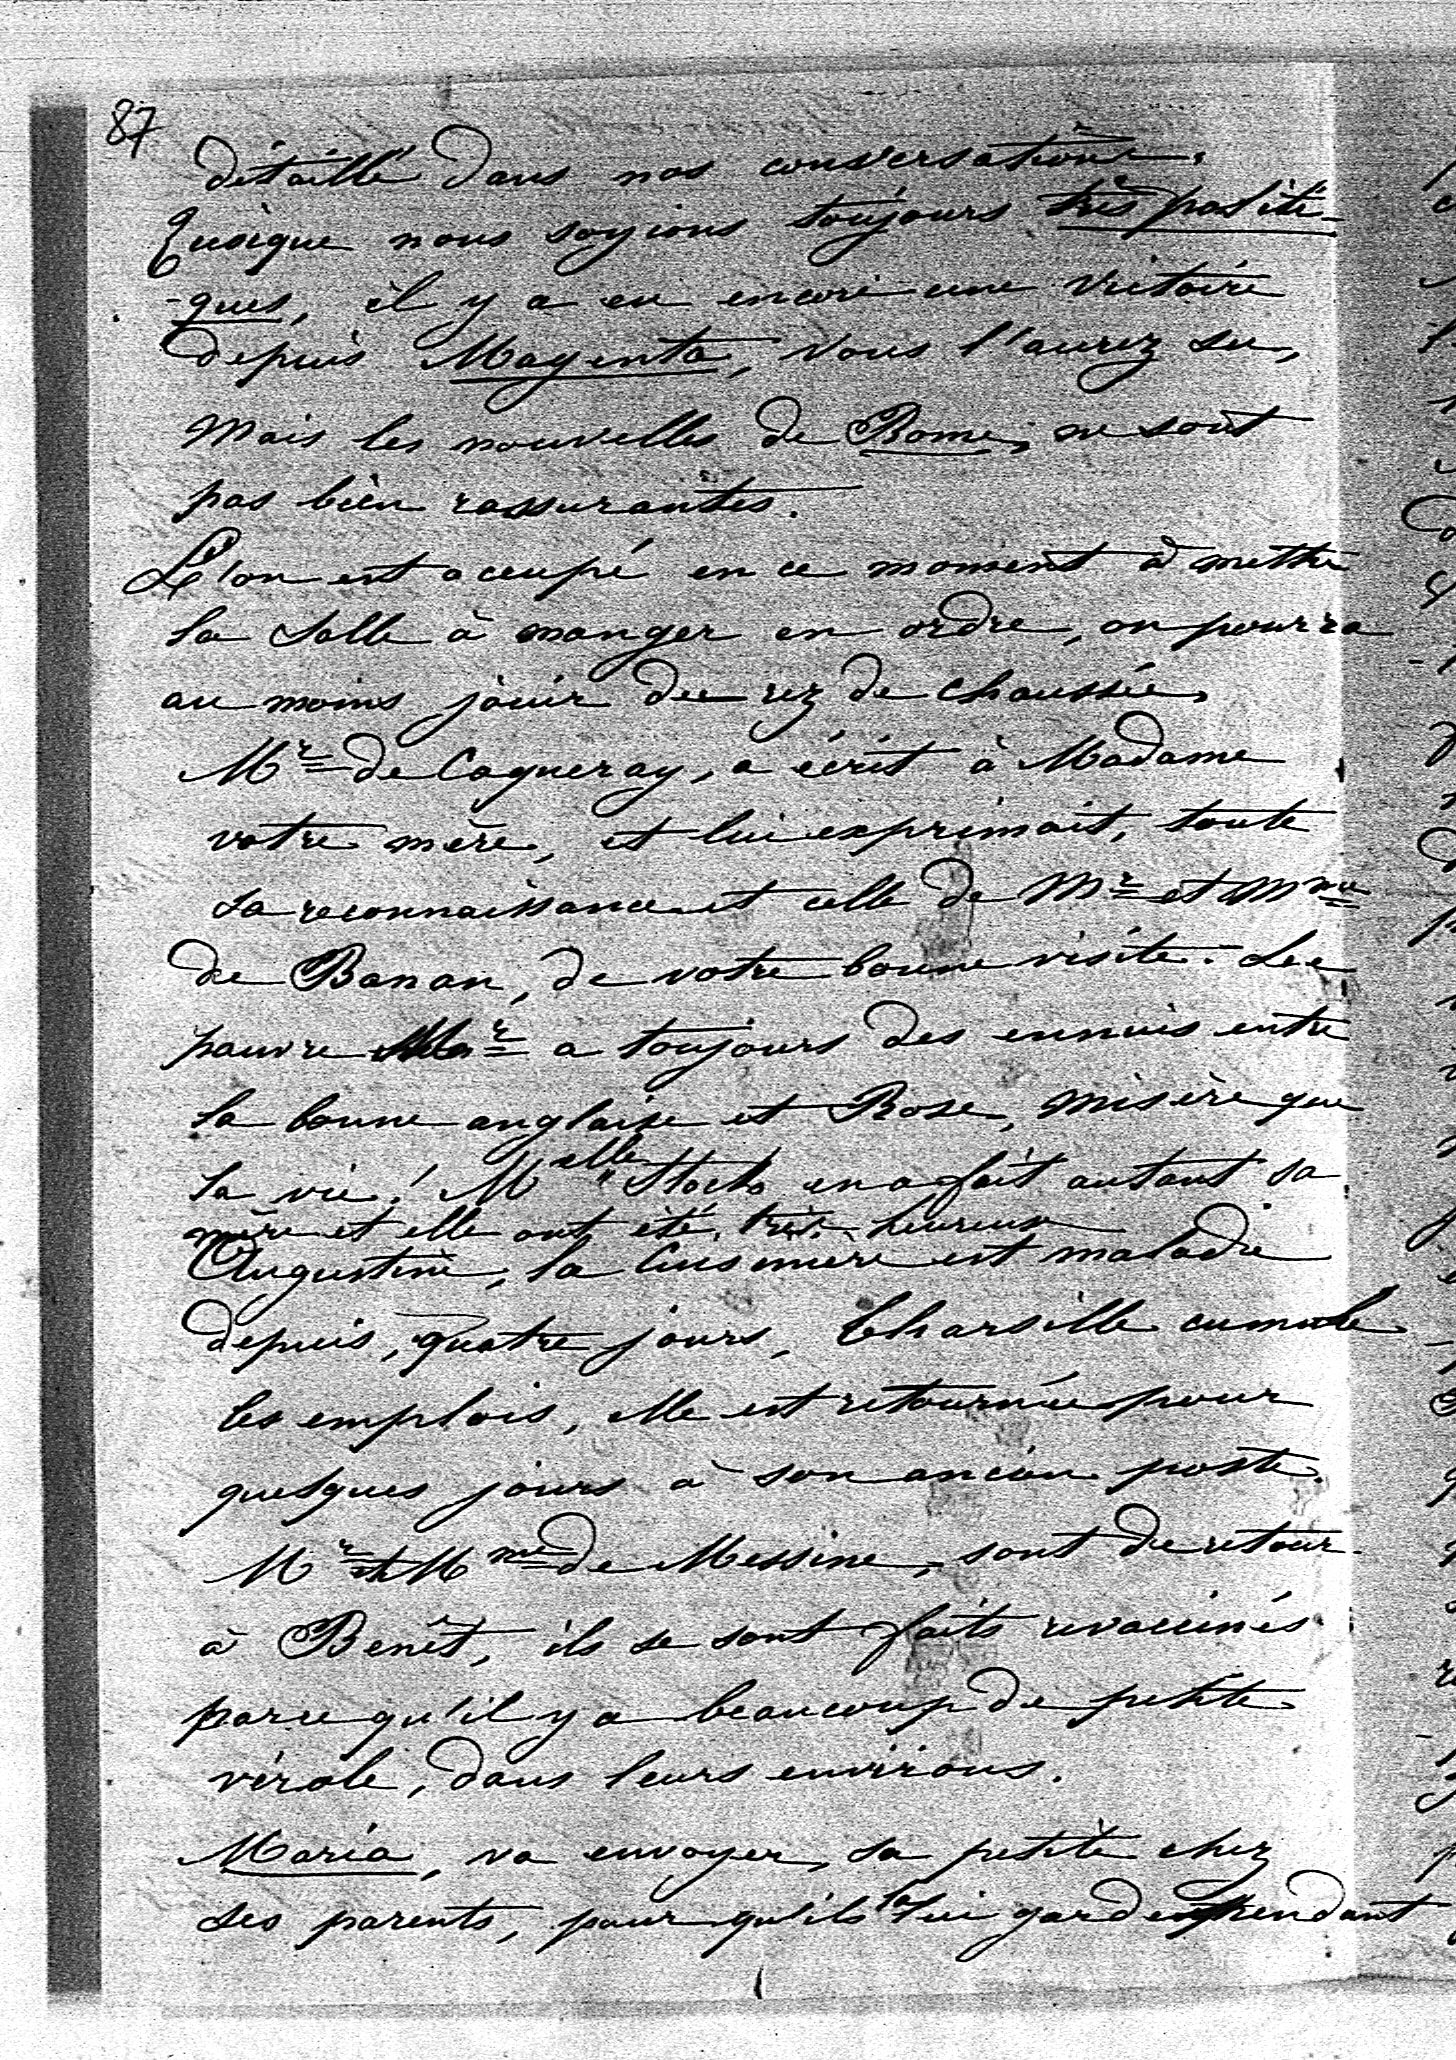 87
détaillé dans nos conversations.
Quoique nous soyions toujours très politi-
-ques, il y a eu encore une victoire
depuis Magenta, vous l'aurez su,
mais les nouvelles de Rome, ne sont
pas bien rassurantes.
L'on est occupé en ce moment à mettre
la salle à manger en ordre, on pourra
au moins jouir du rez de chaussée,
Mr de Caqueray, a écrit à Madame
votre mère, et lui exprimait, toute
sa reconnaissance et celle de Mr et Mme
de Banan, de votre bonne visite. Le
pauvre Mr a toujours des ennuis entre
la bonne anglaise et Rose, misère que
la vie! Melle en a fait autant sa
mère et elle ont été très heureux
Augustine, la cuisinière est malade
depuis, quatre jours, Tharsille cumule
les emplois, elle est retournée pour
quelques jours à son ancien poste.
Mr et Mme de Messine, sont de retour
à Benêt, ils se sont faits revaccinés
parce qu'il y a beaucoup de petite
vérole, dans leurs environs.
Maria, va envoyer, sa petite chez
ses parents, pour qu'ils la lui gardent pendant